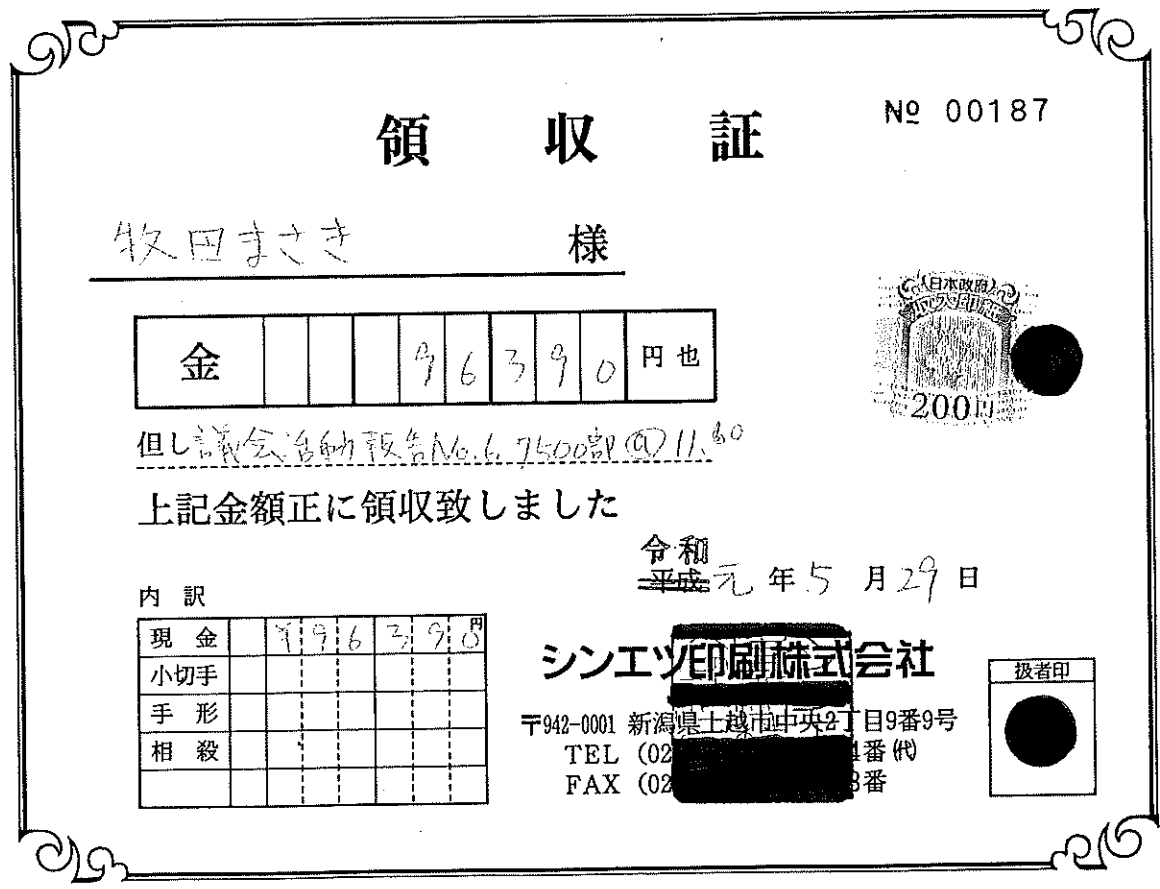 領収証
№ 00187
牧田まさき 様
日本政府
収入印紙
200円
金 96390 円也
但し 議会活動報告No.6 7500部 @11.90
上記金額正に領収致しました
令和
平成 元年 5月 29日
内訳
現金 ¥96390円
小切手
手形
相殺
シンエツ印刷株式会社
〒942-0001 新潟県上越市中央2丁目9番9号
TEL (02 4番(代)
FAX (02 3番
扱者印